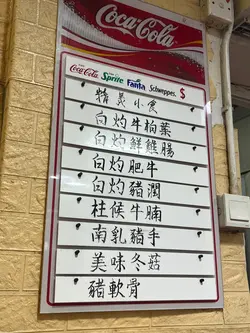 Coca-Cola
Coca-Cola Sprite Fanta Schweppes $
精美小食
白灼牛柏葉
白灼鮮鴨腸
白灼肥牛
白灼豬潤
柱候牛腩
南乳豬手
美味冬菇
豬軟骨